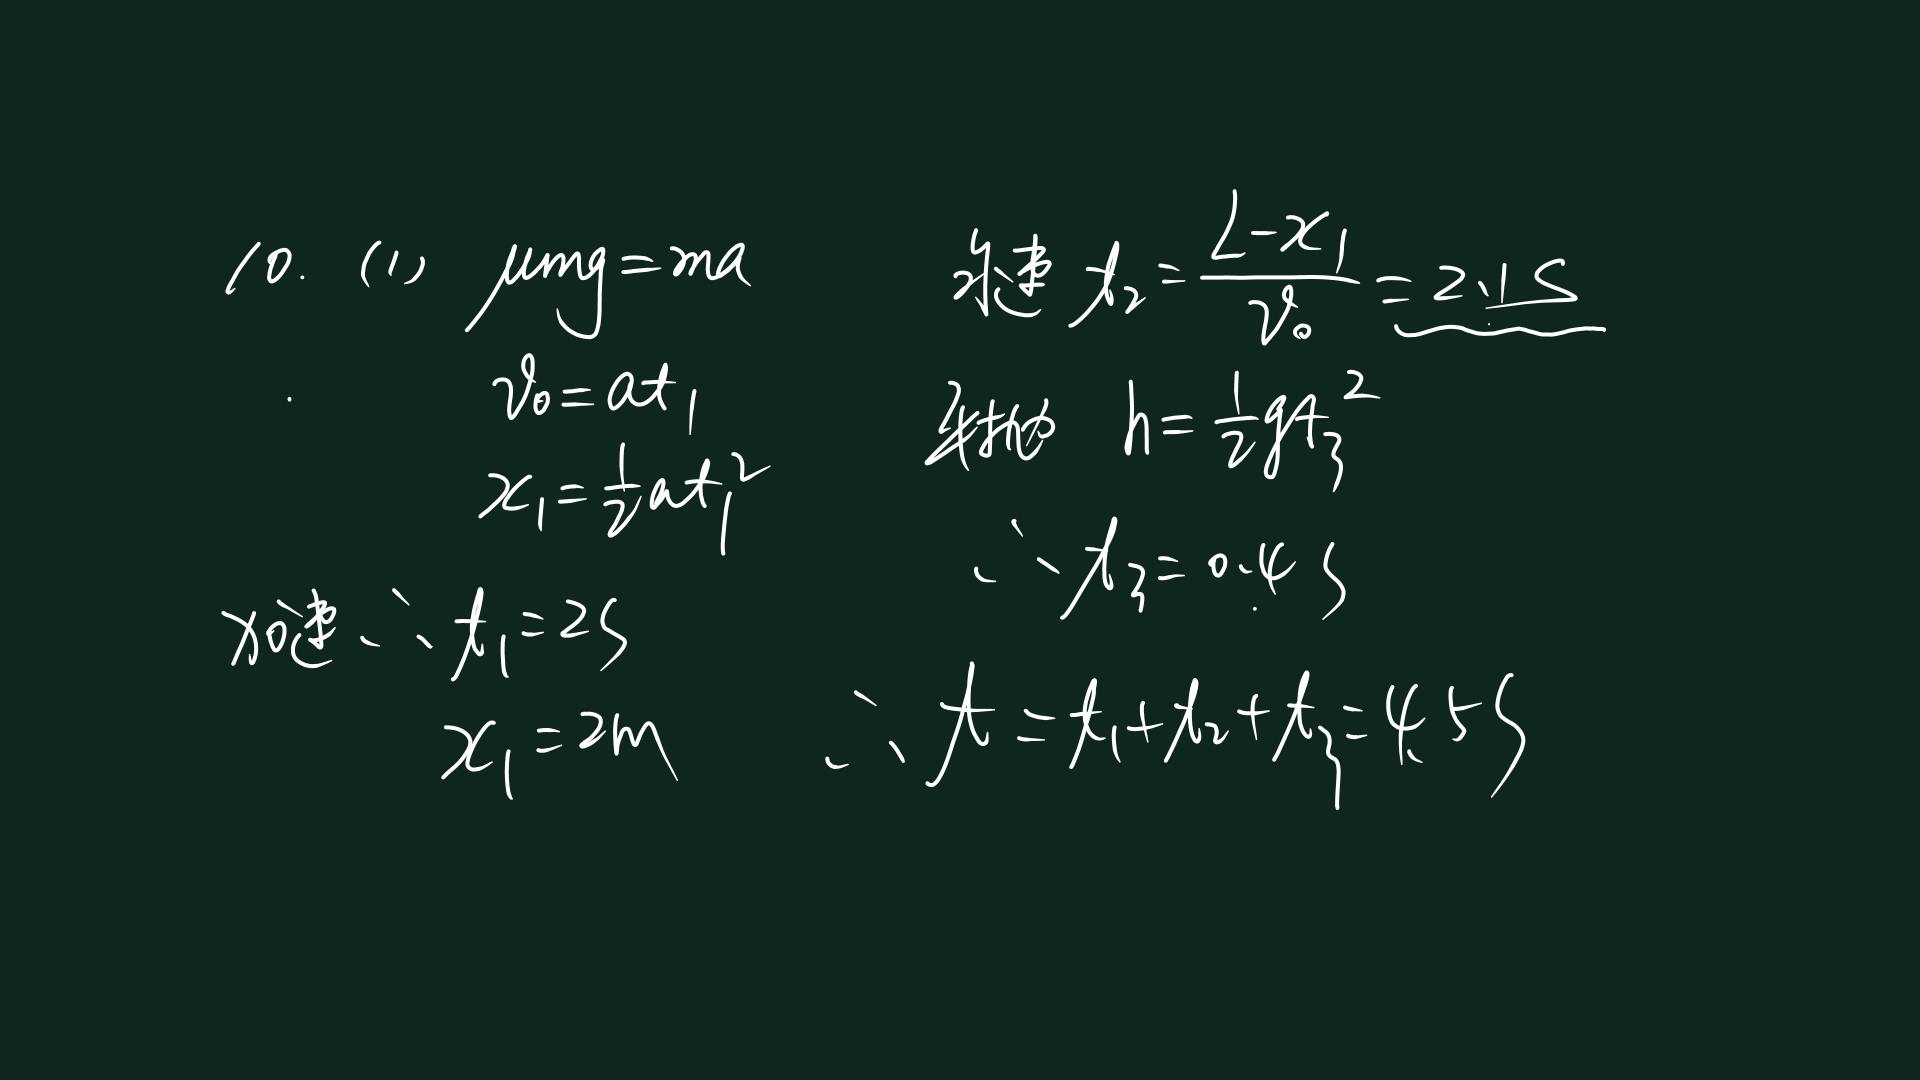 10. (1) μmg=ma
v₀=at₁
x₁=½at₁²
加速 ∴ t₁=2s
x₁=2m
匀速 t₂=(L-x₁)/v₀=2.1s
平抛 h=½gt₃²
∴ t₃=0.4s
∴ t=t₁+t₂+t₃=4.5s